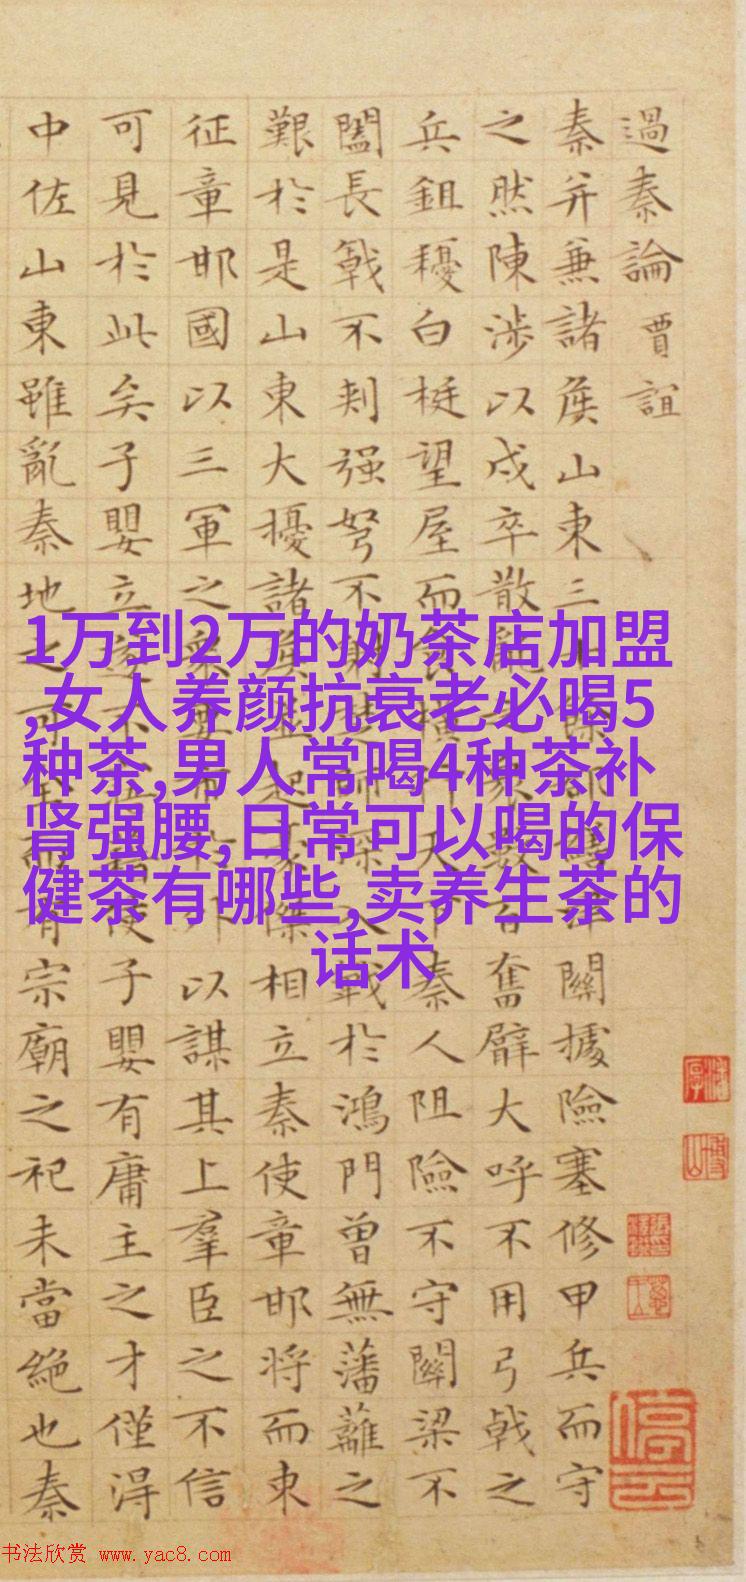 過秦論 賈誼
秦并兼諸侯山東三十餘郡津關據險塞修甲兵而守
之然陳涉以戍卒散亂之眾數百奮臂大呼不用弓戟之
兵鉏耰白梃望屋而食橫行天下秦人阻險不守關梁不
闔長戟不刺强弩不射楚師深入戰於鴻門曾無藩籬之
艱於是山東大擾諸侯並起豪傑相立秦使章邯將而東
征章邯國以三軍之眾要市於外以謀其上羣臣之不信
可見於此矣子嬰立遂不寤使子嬰有庸主之才僅得
中佐山東雖亂秦地之可全而有宗廟之祀未當絶也秦
1万到2万的奶茶店加盟
,女人养颜抗衰老必喝5
种茶,男人常喝4种茶补
肾强腰,日常可以喝的保
健茶有哪些,卖养生茶的
话术
书法欣赏 www.yac8.com